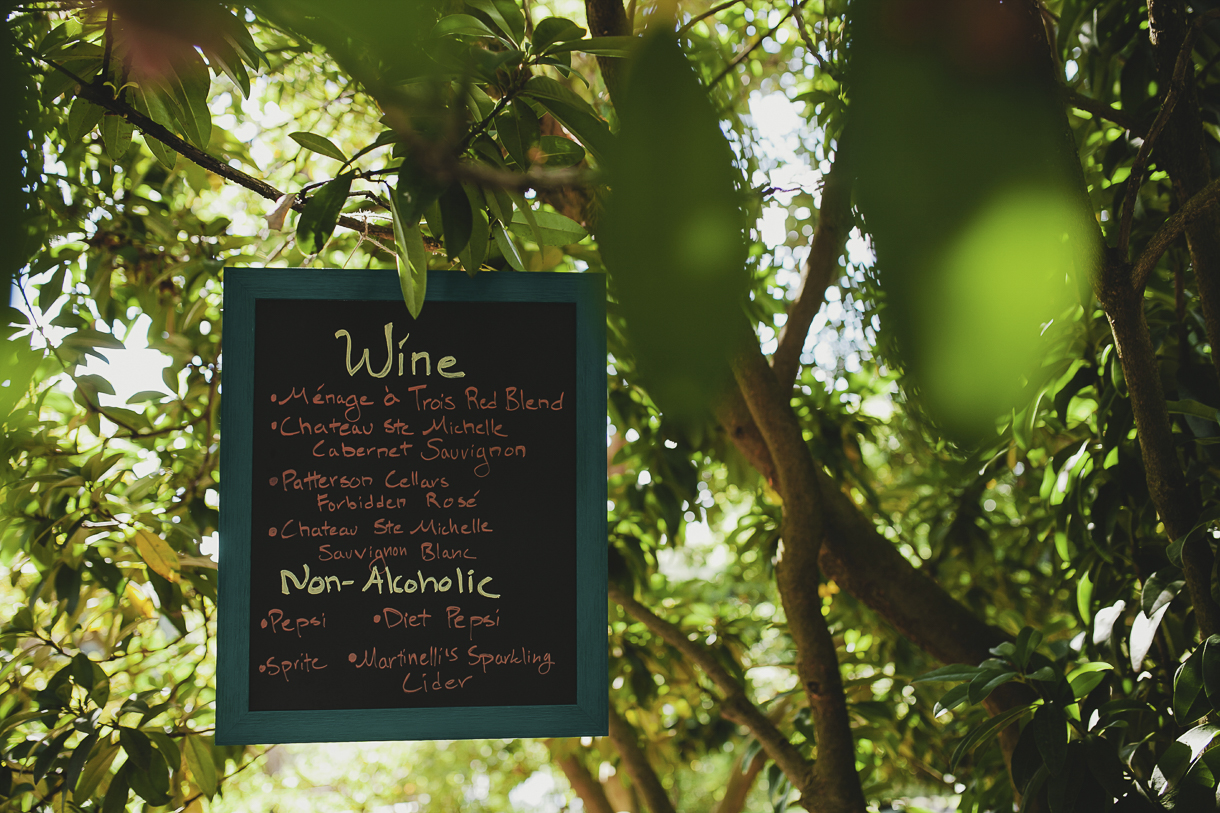 Wine
• Ménage à Trois Red Blend
• Chateau Ste Michelle
Cabernet Sauvignon
• Patterson Cellars
Forbidden Rosé
• Chateau Ste Michelle
Sauvignon Blanc
Non-Alcoholic
• Pepsi • Diet Pepsi
• Sprite • Martinelli's Sparkling
Cider